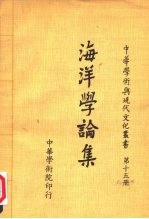 中華學術與現代文化叢書 第十五冊
海洋學論集
中華學術院印行